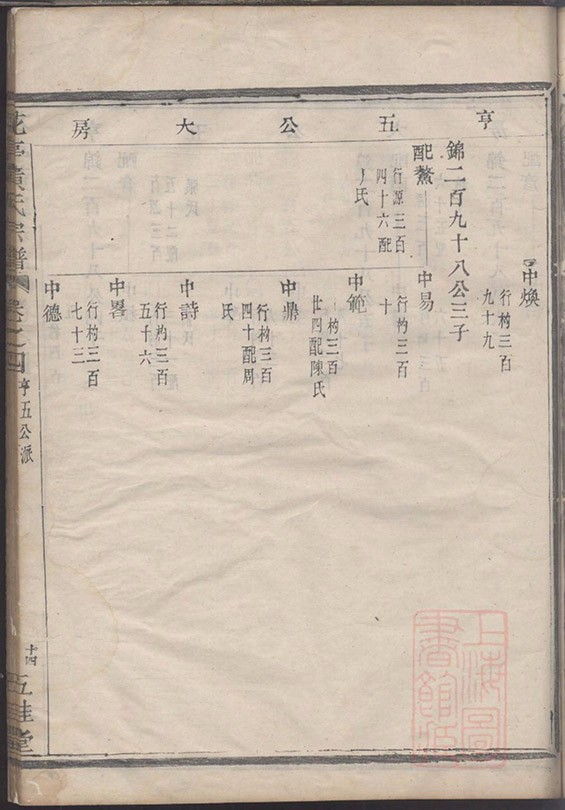 亨五公大房
中煥
行杓三百
九十九
錦二百九十八公三子
配鰲
行源三百
四十六配
氏
中易
行杓三百
十
中範
杓三百
廿四配陳氏
中鼎
行杓三百
四十配周
氏
中詩
行杓三百
五十六
中畧
行杓三百
七十三
中德
黃氏宗譜
卷之四
亨五公派
十四
五桂堂
上海圖書館藏